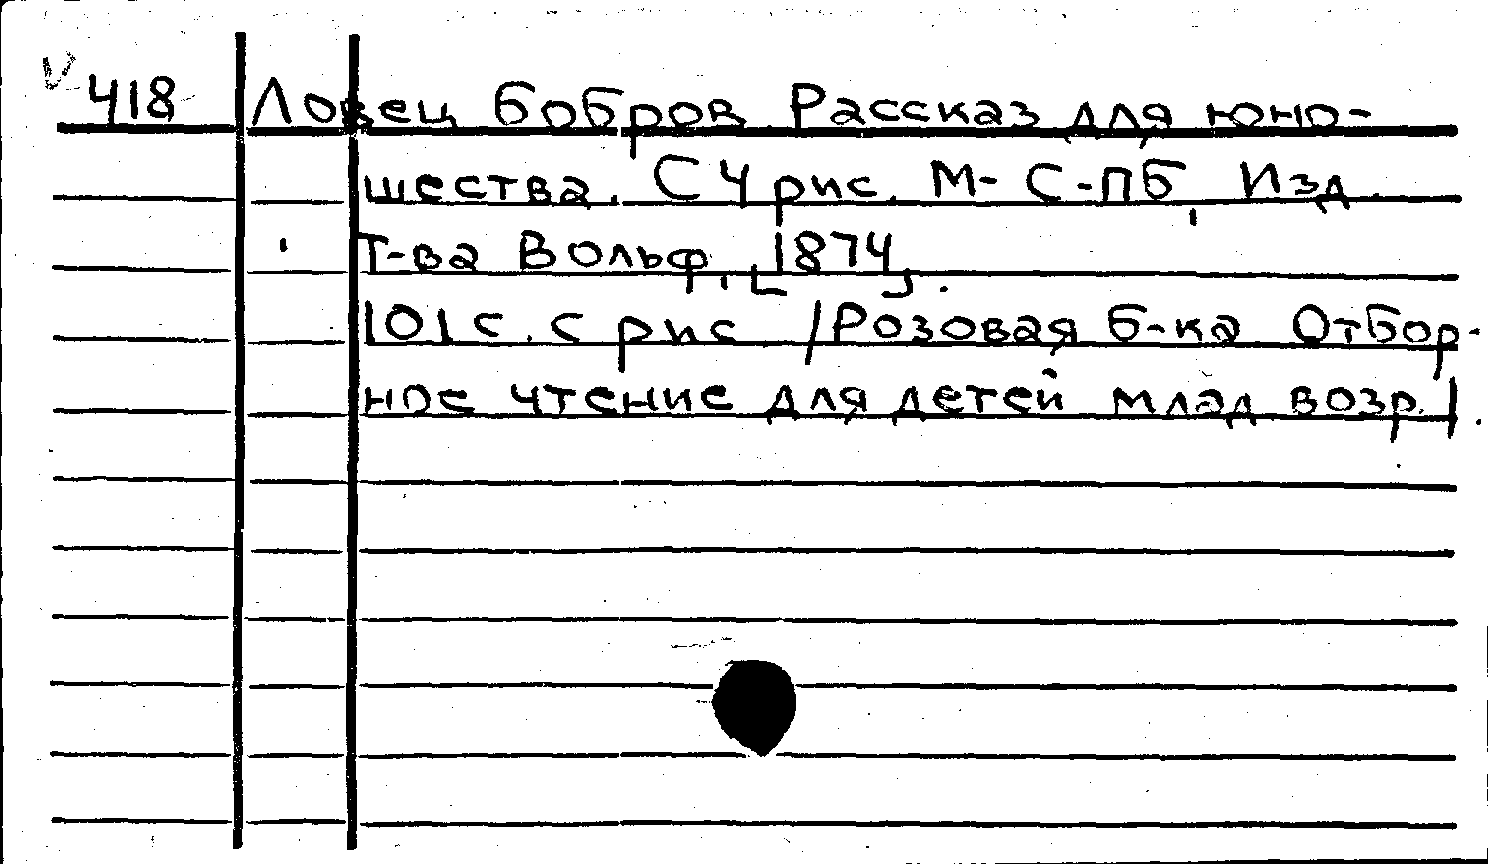 418 Ловец бобров. Рассказ для юно-
шества. С 4 рис. М-С-ПБ, Изд.
Т-ва Вольф, [1874].
101 с. с рис /Розовая б-ка Отбор-
ное чтение для детей млад возр./.